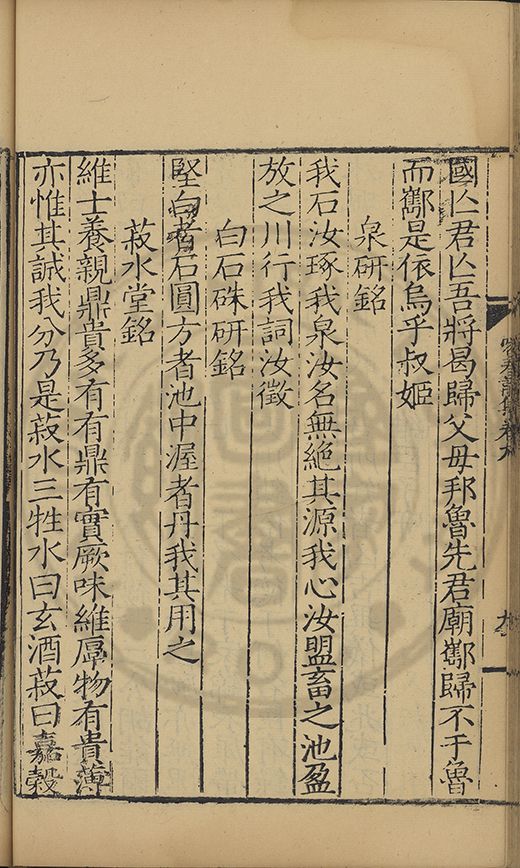 國亾君亾吾將曷歸父毋邦魯先君廟酅歸不于魯
而酅是依烏乎叔姬
泉研銘
我石汝琢我泉汝名無絕其源我心汝盟畜之池盈
放之川行我詞汝徵
白石硃研銘
堅白者石圓方者池中渥者丹我其用之
菽水堂銘
維士養親鼎貴多有有鼎有實厥味維厚物有貴薄
亦惟其誠我分乃是菽水三牲水曰玄酒菽曰嘉穀
卷九
九